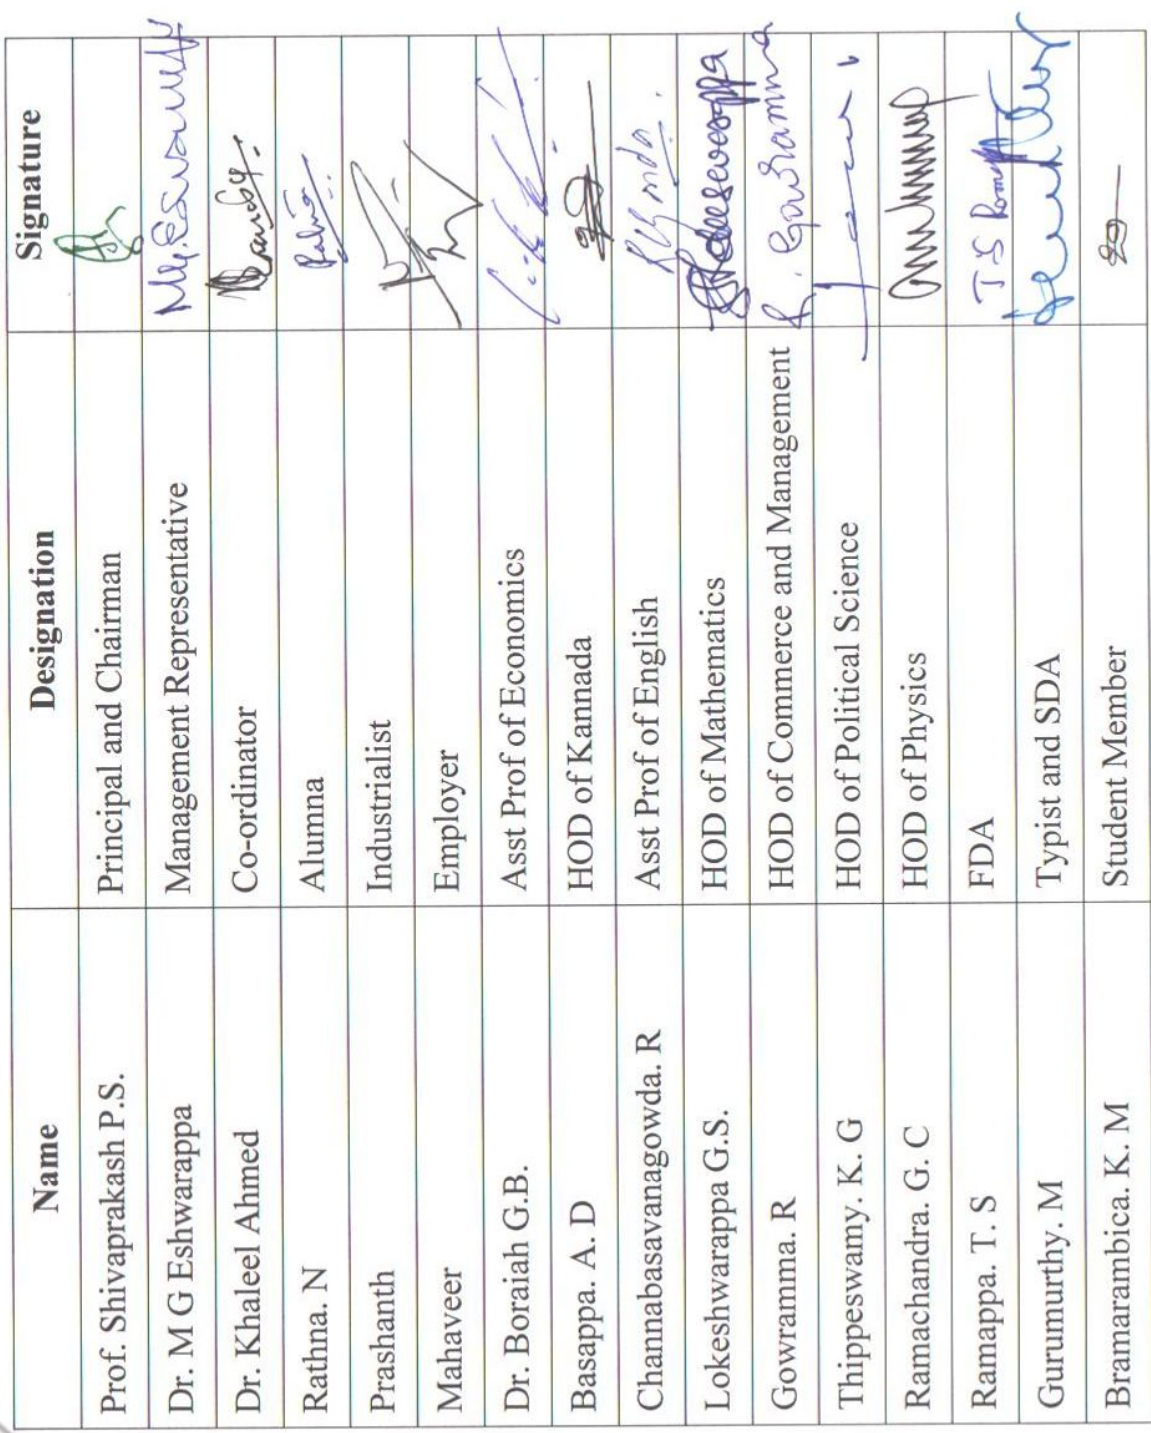 Name Designation Signature
Prof. Shivaprakash P.S. Principal and Chairman
Dr. M G Eshwarappa Management Representative
Dr. Khaleel Ahmed Co-ordinator
Rathna. N Alumna
Prashanth Industrialist
Mahaveer Employer
Dr. Boraiah G.B. Asst Prof of Economics
Basappa. A. D HOD of Kannada
Channabasavanagowda. R Asst Prof of English
Lokeshwarappa G.S. HOD of Mathematics
Gowramma. R HOD of Commerce and Management R. Gowramma
Thippeswamy. K. G HOD of Political Science
Ramachandra. G. C HOD of Physics
Ramappa. T. S FDA T S
Gurumurthy. M Typist and SDA
Bramarambica. K. M Student Member